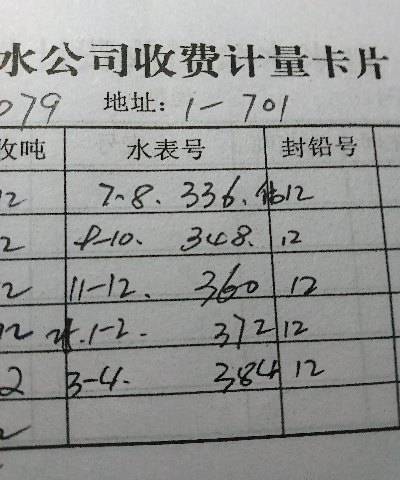 水公司收费计量卡片
079 地址: 1-701
收吨 水表号 封铅号
12 7-8. 336. 12
2 9-10. 348. 12
2 11-12. 360 12
12 1-2. 372 12
2 3-4. 384 12
2